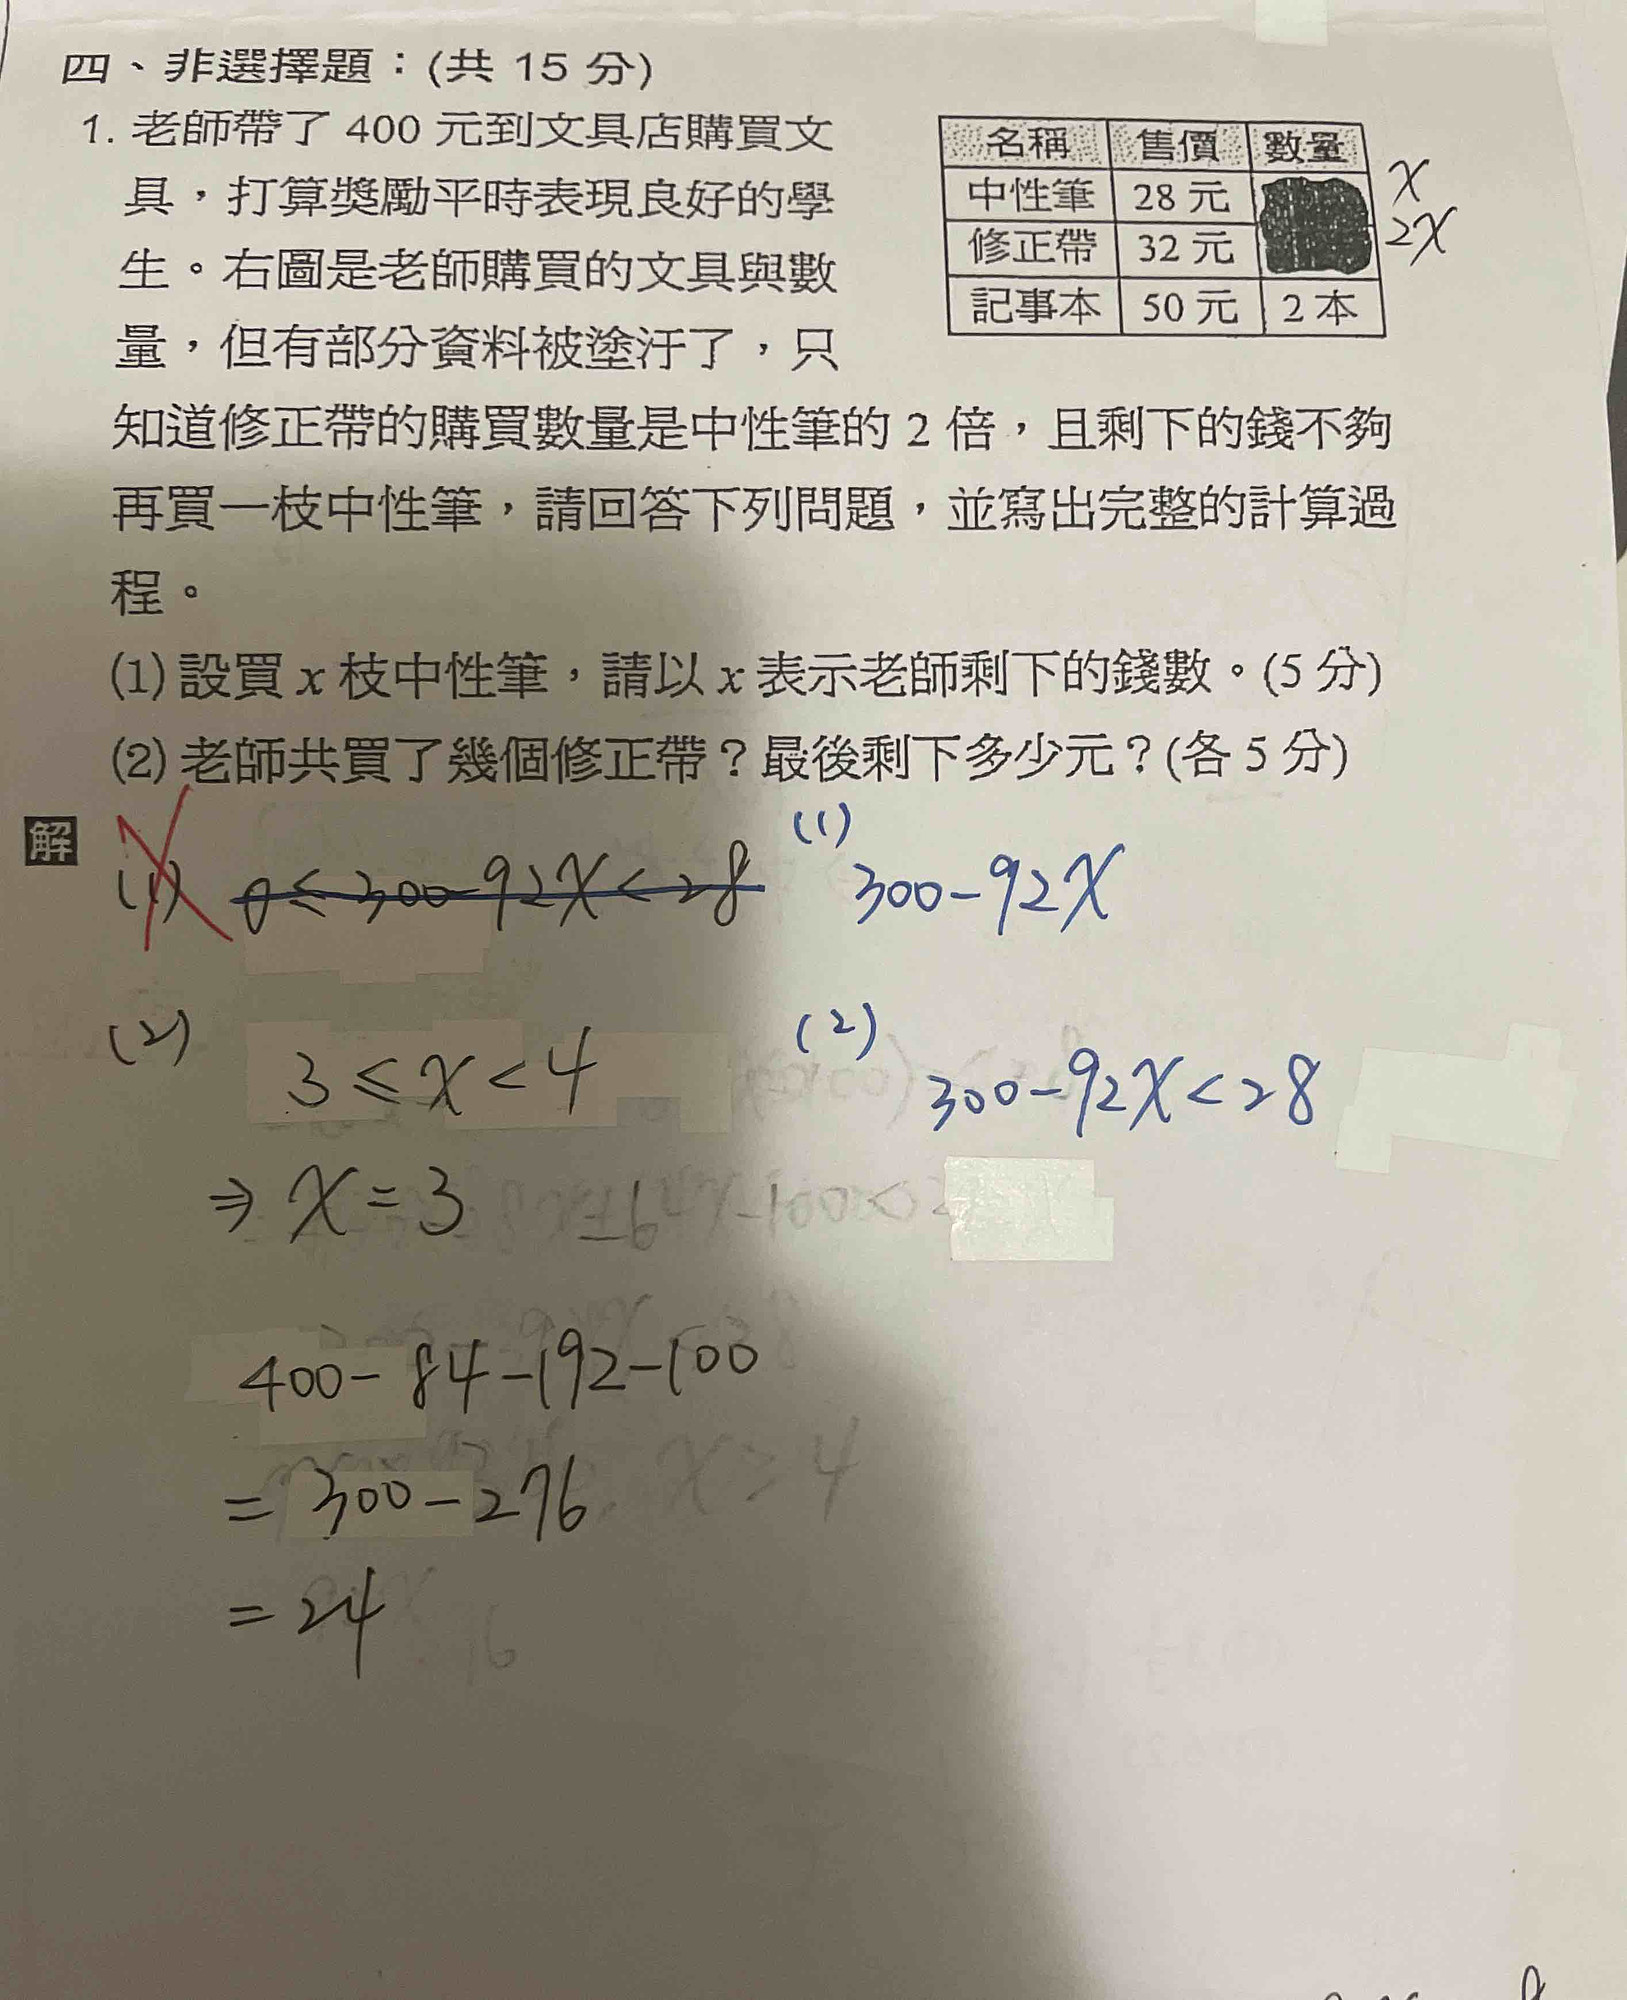 四、非選擇題：(共 15 分)
1. 老師帶了 400 元到文具店購買文
具，打算獎勵平時表現良好的學
生。右圖是老師購買的文具與數
量，但有部分資料被塗汙了，只
知道修正帶的購買數量是中性筆的 2 倍，且剩下的錢不夠
再買一枝中性筆，請回答下列問題，並寫出完整的計算過
程。
名稱 售價 數量
中性筆 28 元 x
修正帶 32 元 2x
記事本 50 元 2 本
(1) 設買 x 枝中性筆，請以 x 表示老師剩下的錢數。(5 分)
(2) 老師共買了幾個修正帶？最後剩下多少元？(各 5 分)
解
(1) 0≤300-92x<28
(2) 3≤x<4
⇒ x=3
400-84-192-100
=300-276
=24
(1)
300-92x
(2)
300-92x<28